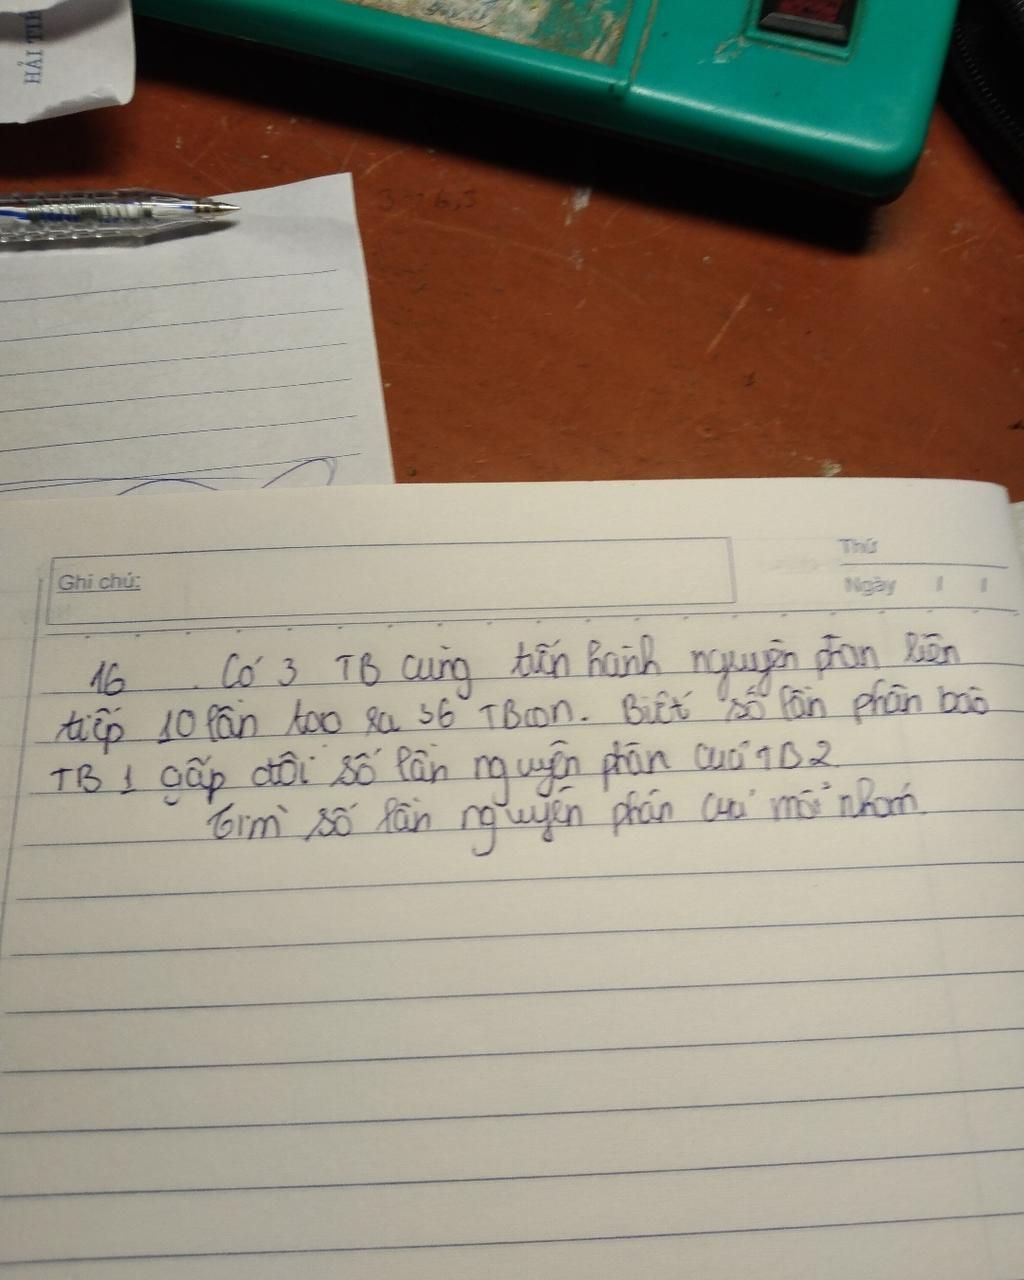 HẢI TIẾ
Ghi chú:
Thứ
Ngày / /
16 . Có 3 TB cùng tiến hành nguyên phân liên
tiếp 10 lần tạo ra 36 TBcon. Biết số lần phân bào
TB 1 gấp đôi số lần nguyên phân của TB2
tìm số lần nguyên phân của mỗi nhóm